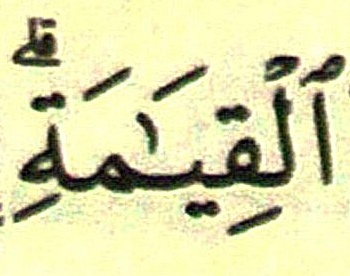 ٱلْقِيَـٰمَةِ ۗ